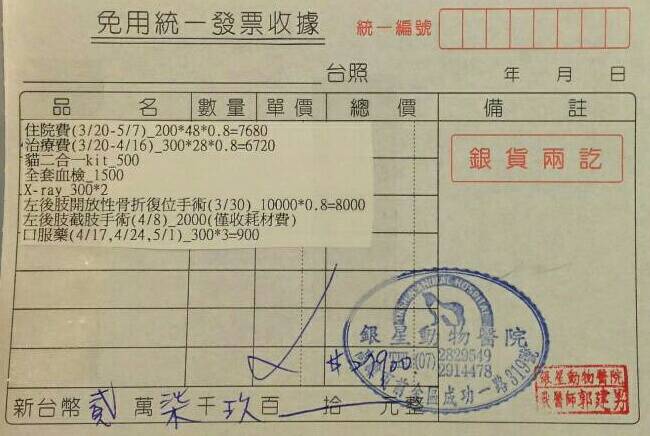 免用統一發票收據
統一編號
台照 年 月 日
品 名 數量 單價 總 價 備 註
住院費(3/20-5/7)_200*48*0.8=7680
治療費(3/20-4/16)_300*28*0.8=6720
貓二合一kit_500
全套血檢_1500
X-ray_300*2
左後肢開放性骨折復位手術(3/30)_10000*0.8=8000
左後肢截肢手術(4/8)_2000(僅收耗材費)
口服藥(4/17,4/24,5/1)_300*3=900
銀貨兩訖
ANIMAL HOSPITAL
銀星動物醫院
TEL:(07)2829549
2914478
區成功一路319號
銀星動物醫院
獸醫師郭建男
新台幣 貳 萬 柒 千 玖 百 拾 元整